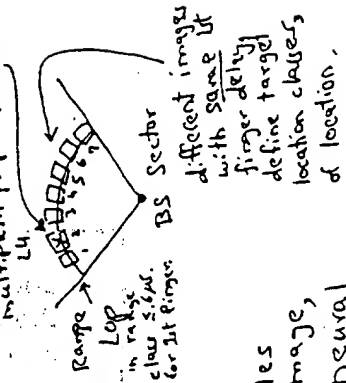 multipath
L4.
Range
LOP
in range
class 5.6 µs.
for 1st finger.
1 2 3 4 5 6 7
BS Sector
different images
with same 1st
finger delay,
define target
location classes,
of location.
les
mage,
neural